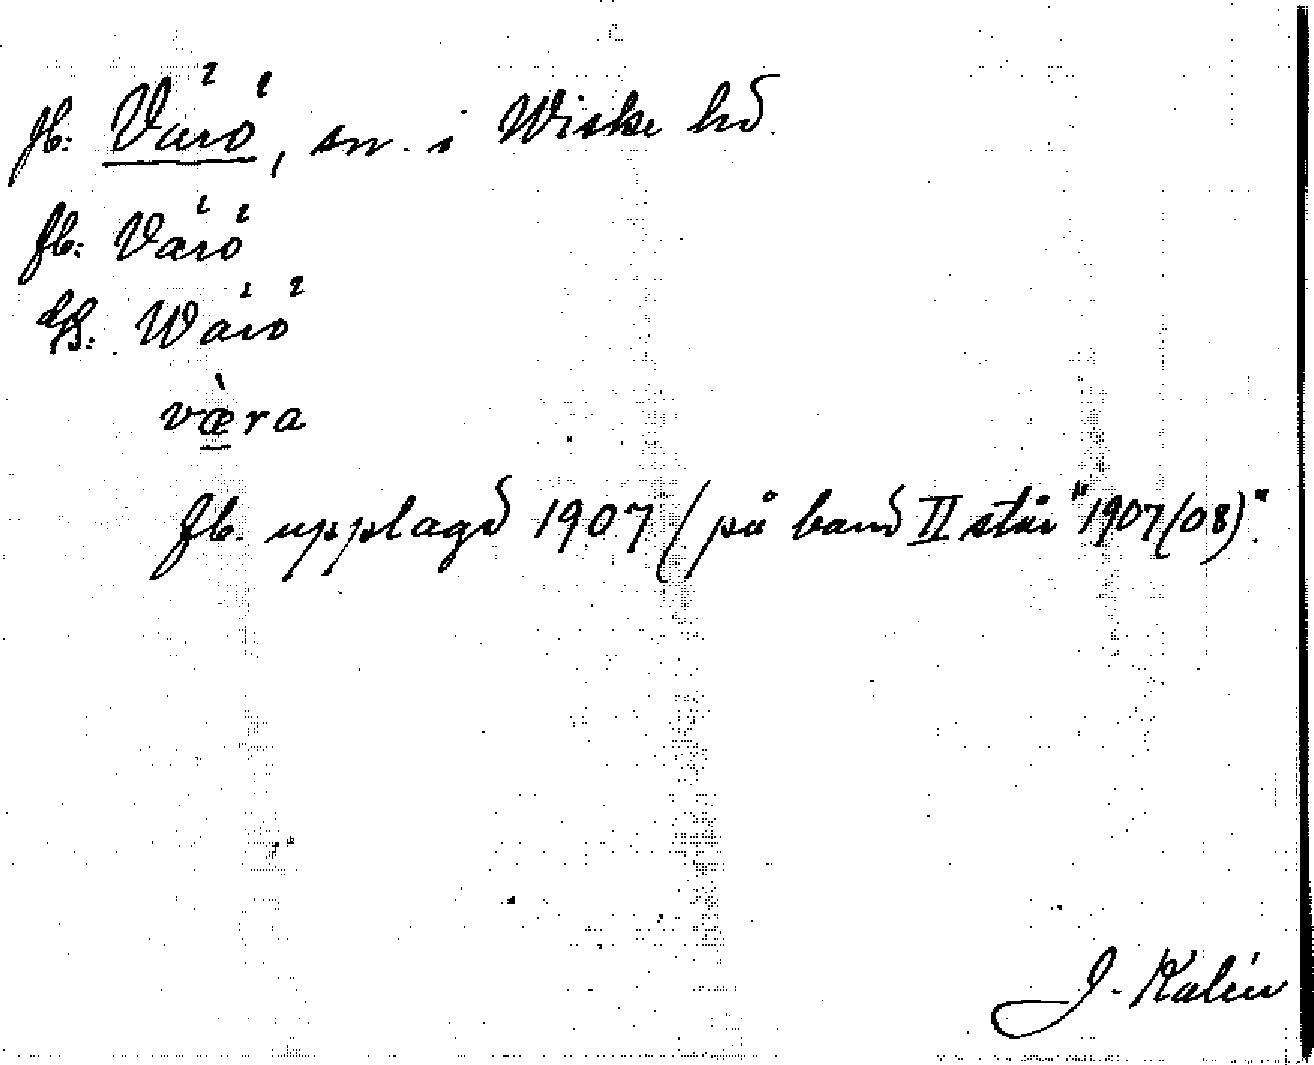 Jb: Värö, sn. i Wiske hd.
fb: Värö
GS: Wärö
væ̀ra
Jb. upplagd 1907 (på band II står "1907(08)".
J. Kalén